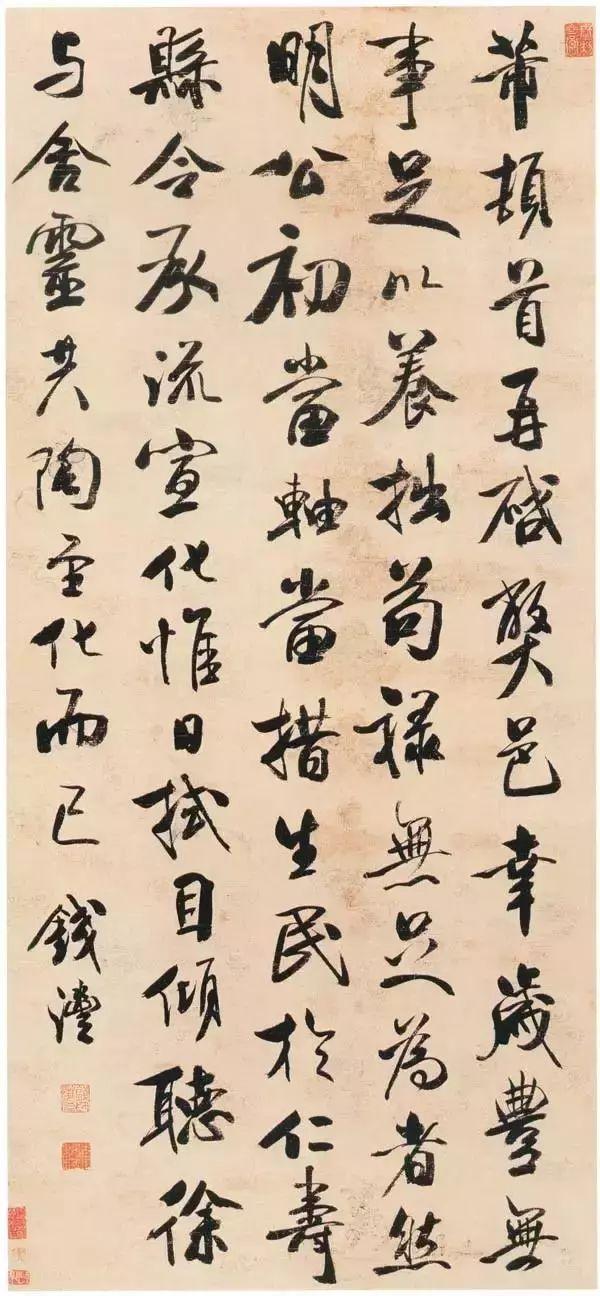 芾頓首再啓獘邑幸歲豐無
事足以養拙苟祿無足為者然
明公初當軸當措生民於仁壽
縣令承流宣化惟日拭目傾聽徐
与含靈共陶至化而已 錢灃